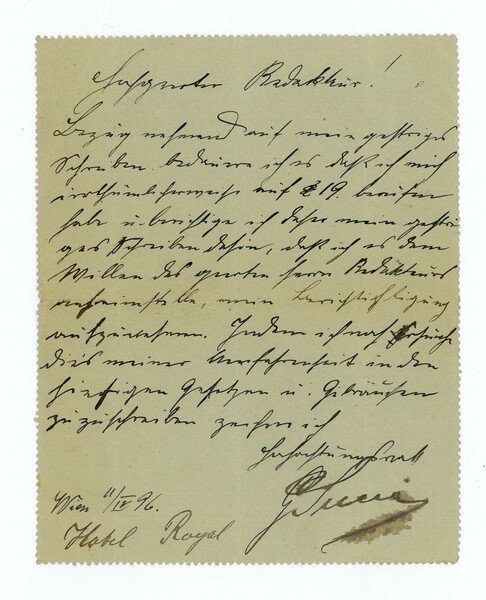 Geehrter Redakteur!
Bezug nehmend auf mein gestriges
Schreiben bedauere ich es daß ich mich
irrthümlicherweise auf § 19. berufen
habe u. berichtige ich daher mein gestri-
ges Schreiben dahin, daß ich es dem
Willen des geehrten Herrn Redakteurs
anheimstelle, meine Berichtigung
aufzunehmen. Indem ich noch ersuche
dies meiner Unerfahrenheit in den
hiesigen Gesetzen u. Gebräuchen
zuzuschreiben zeichne ich
Hochachtungsvoll
Wien 11/IV 96.
Hotel Royal